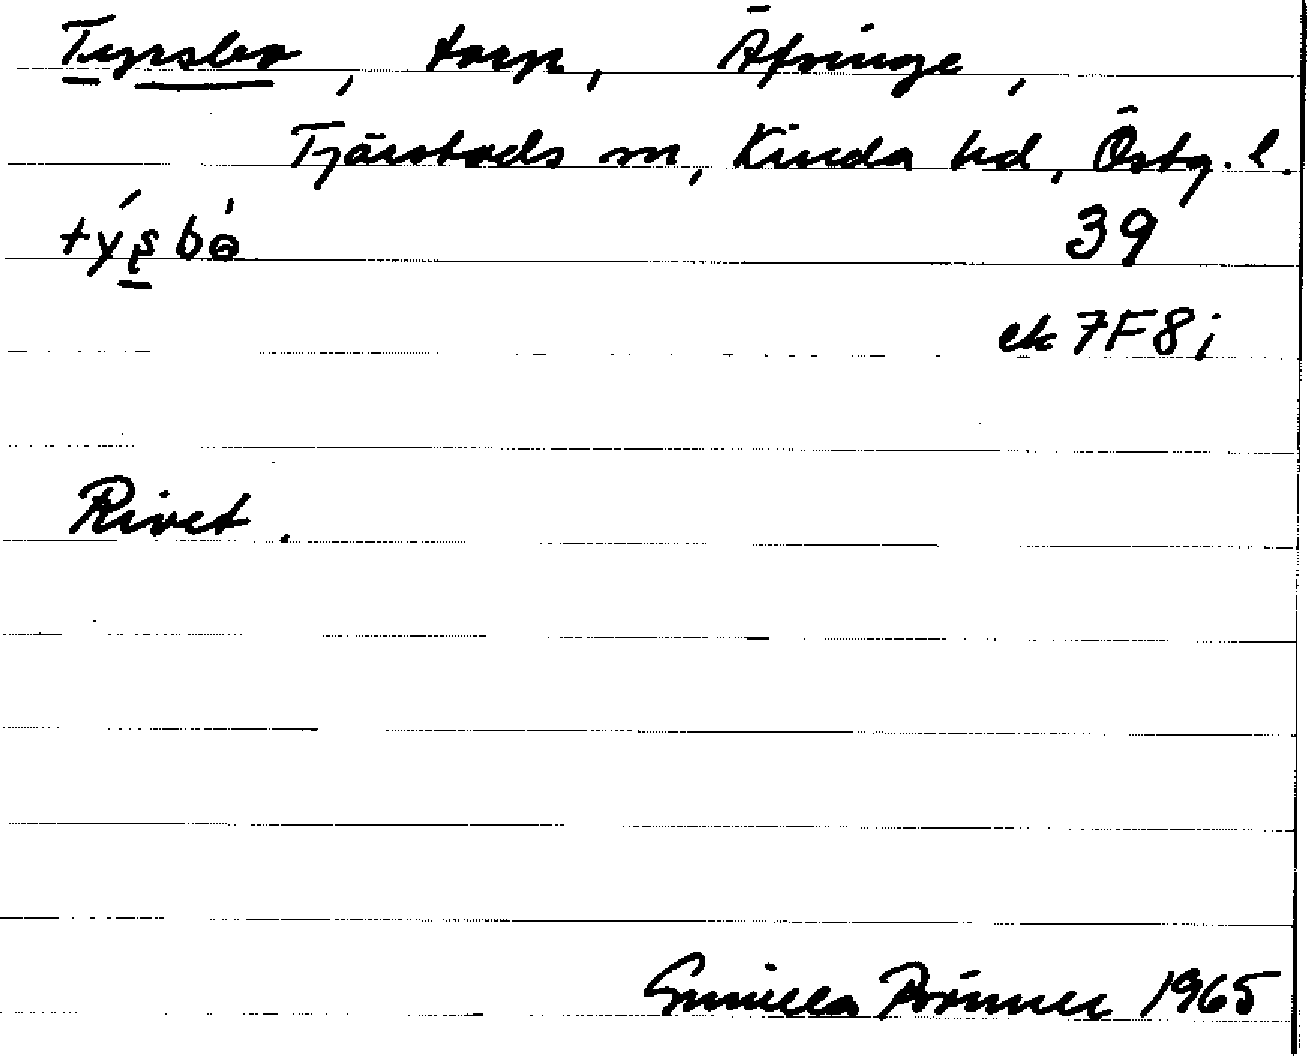 Tyrsbo, torp, Äfringe,
Tjärstads sn, Kinda hd, Östg. l.
39
ek 7F8i
Rivet.
Gunilla Primmer 1965